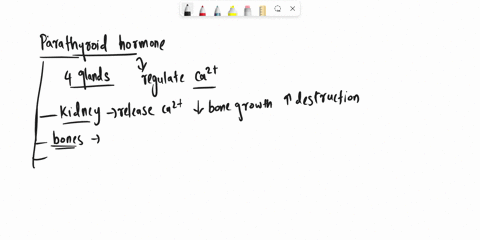 Parathyroid hormone
4 glands regulate Ca²⁺
Kidney → release Ca²⁺ ↓ bone growth ↑ destruction
bones →